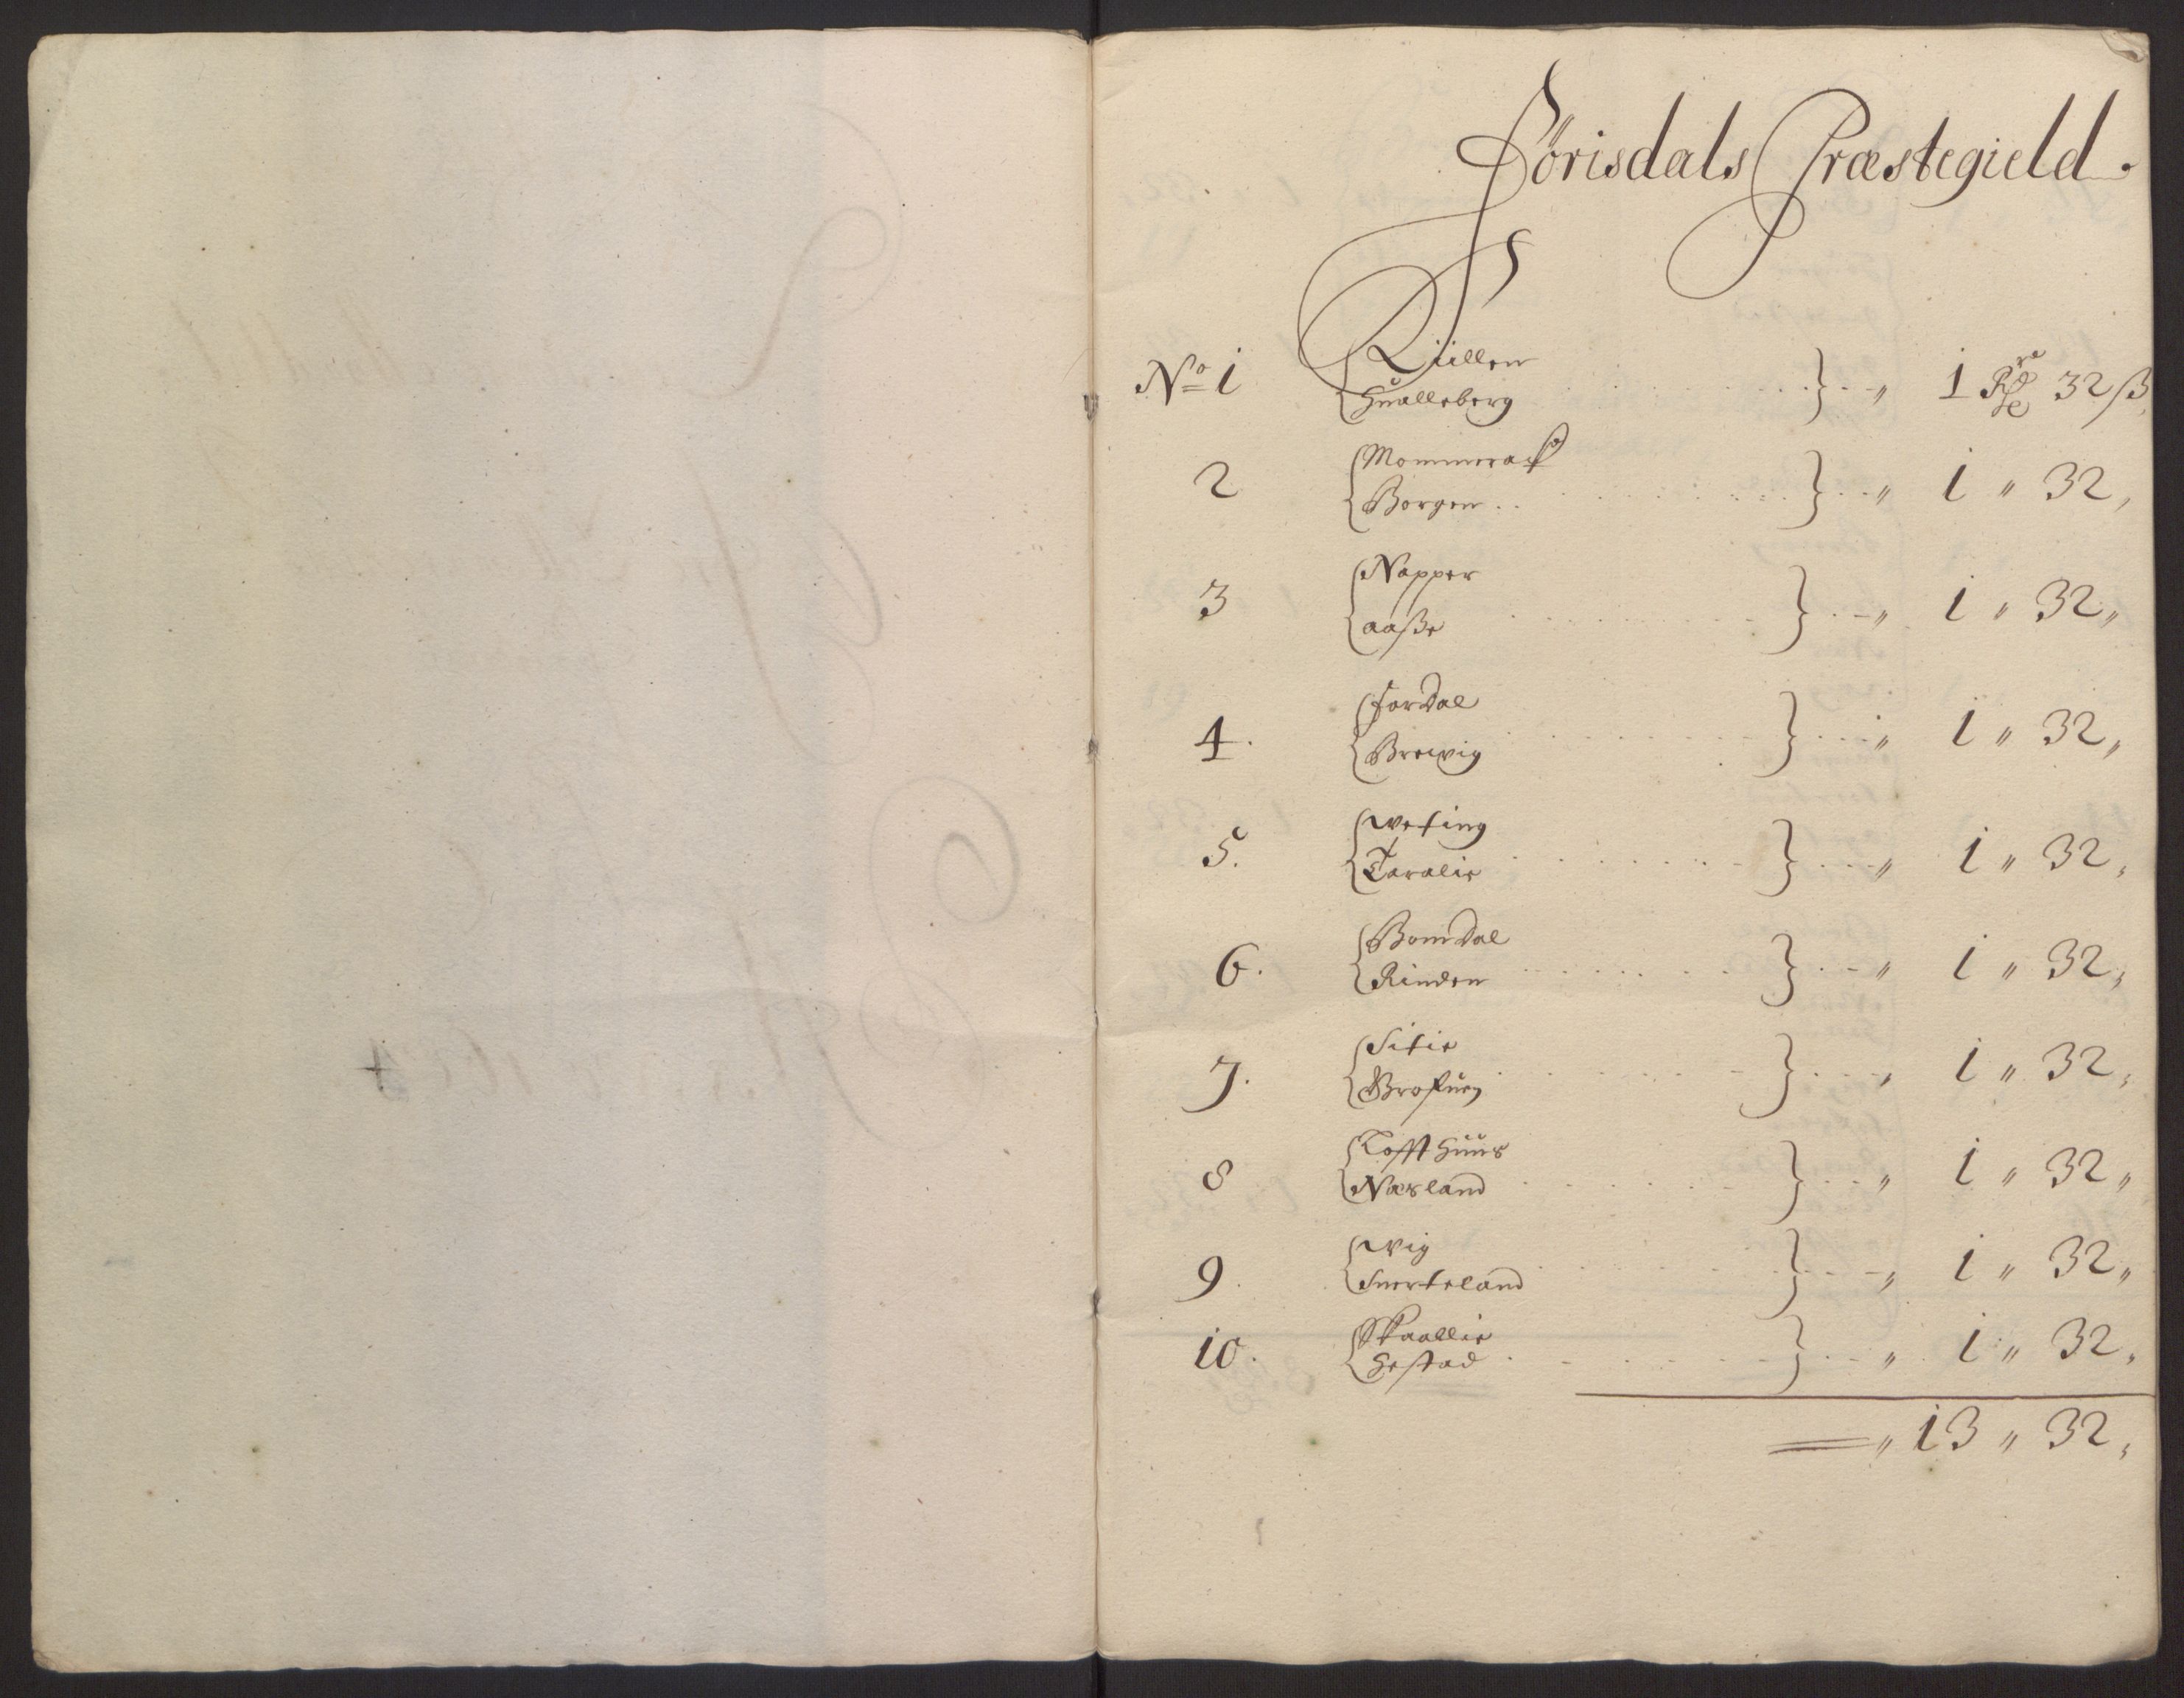 Sörisdals Præstegield.
No 1 Qüillen
Hualleberg } „ 1 Rdr 32 ß
2 Mommerack
Borgen .. } „ 1 „ 32,
3 Napper
aaße } „ 1 „ 32„
4. Jordal
Brewig } „ 1 „ 32„
5. Weting
Taralie } „ 1 „ 32,
6. Bomdal
Rinden } „ 1 „ 32,
7. Sitie
Brokuey } „ 1 „ 32,
8 Toffthuus
Næsland } „ 1 „ 32„
9. Wig
Smerteland } „ 1 „ 32„
10. Skaallie
Gestad } „ 1 „ 32,
„ 13 „ 32,